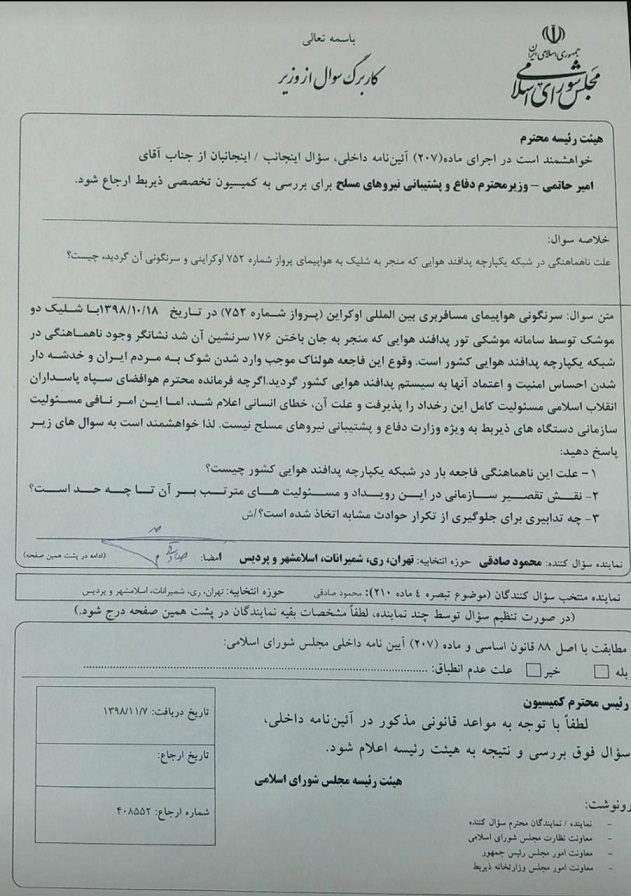 باسمه تعالی
کاربرگ سوال از وزیر
جمهوری اسلامی ایران
مجلس شورای اسلامی
هیئت رئیسه محترم
خواهشمند است در اجرای ماده(۲۰۷) آئین‌نامه داخلی، سؤال اینجانب / اینجانبان از جناب آقای
امیر حاتمی – وزیرمحترم دفاع و پشتیبانی نیروهای مسلح برای بررسی به کمیسیون تخصصی ذیربط ارجاع شود.
خلاصه سوال:
علت ناهماهنگی در شبکه یکپارچه پدافند هوایی که منجر به شلیک به هواپیمای پرواز شماره ۷۵۲ اوکراینی و سرنگونی آن گردید، چیست؟
متن سوال: سرنگونی هواپیمای مسافربری بین المللی اوکراین (پرواز شماره ۷۵۲) در تاریخ ۱۳۹۸/۱۰/۱۸با شلیک دو
موشک توسط سامانه موشکی تور پدافند هوایی که منجر به جان باختن ۱۷۶ سرنشین آن شد نشانگر وجود ناهماهنگی در
شبکه یکپارچه پدافند هوایی کشور است. وقوع این فاجعه هولناک موجب وارد شدن شوک به مردم ایران و خدشه دار
شدن احساس امنیت و اعتماد آنها به سیستم پدافند هوایی کشور گردید.اگرچه فرمانده محترم هوافضای سپاه پاسداران
انقلاب اسلامی مسئولیت کامل این رخداد را پذیرفت و علت آن، خطای انسانی اعلام شد، اما این امر نافی مسئولیت
سازمانی دستگاه های ذیربط به ویژه وزارت دفاع و پشتیبانی نیروهای مسلح نیست. لذا خواهشمند است به سوال های زیر
پاسخ دهید:
۱- علت این ناهماهنگی فاجعه بار در شبکه یکپارچه پدافند هوایی کشور چیست؟
۲- نقش تقصیر سازمانی در این رویداد و مسئولیت های مترتب بر آن تا چه حد است؟
۳- چه تدابیری برای جلوگیری از تکرار حوادث مشابه اتخاذ شده است؟/ش
نماینده سؤال کننده: محمود صادقی حوزه انتخابیه: تهران، ری، شمیرانات، اسلامشهر و پردیس امضا: (ادامه در پشت همین صفحه)
نماینده منتخب سؤال کنندگان (موضوع تبصره ۴ ماده ۲۱۰): محمود صادقی حوزه انتخابیه: تهران، ری، شمیرانات، اسلامشهر و پردیس
(در صورت تنظیم سؤال توسط چند نماینده، لطفاً مشخصات بقیه نمایندگان در پشت همین صفحه درج شود.)
مطابقت با اصل ۸۸ قانون اساسی و ماده (۲۰۷) آیین نامه داخلی مجلس شورای اسلامی:
بله خیر علت عدم انطباق:
رئیس محترم کمیسیون
لطفاً با توجه به مواعد قانونی مذکور در آئین‌نامه داخلی،
سؤال فوق بررسی و نتیجه به هیئت رئیسه اعلام شود.
هیئت رئیسه مجلس شورای اسلامی
تاریخ دریافت: ۱۳۹۸/۱۱/۷
تاریخ ارجاع:
شماره ارجاع: ۴۰۸۵۵۲
رونوشت:
- نماینده / نمایندگان محترم سؤال کننده
- معاونت نظارت مجلس شورای اسلامی
- معاونت امور مجلس رئیس جمهور
- معاونت امور مجلس وزارتخانه ذیربط